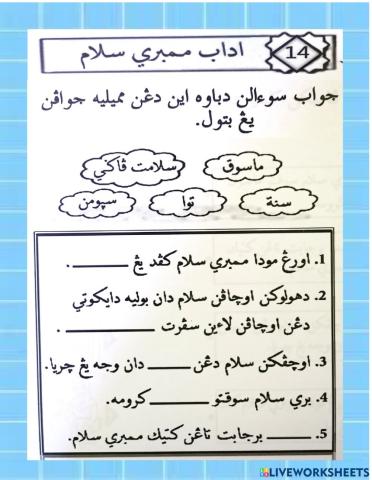 14 اداب ممبري سلام
جواب سوءالن دباوه اين دڠن ميليه جواڤن
يڠ بتول.
ماسوق سلامت ڤاݢي
سنة توا سڽومن
1. اورڠ مودا ممبري سلام كڤد يڠ ______ .
2. دهولوكن اوچاڤن سلام دان بوليه دايكوتي
دڠن اوچاڤن لاءين سڤرت ______ .
3. اوچڤكن سلام دڠن ______ دان وجه يڠ چريا.
4. بري سلام سوقتو ______ كرومه.
5. ______ برجابت تاڠن كتيك ممبري سلام.
LIVEWORKSHEETS